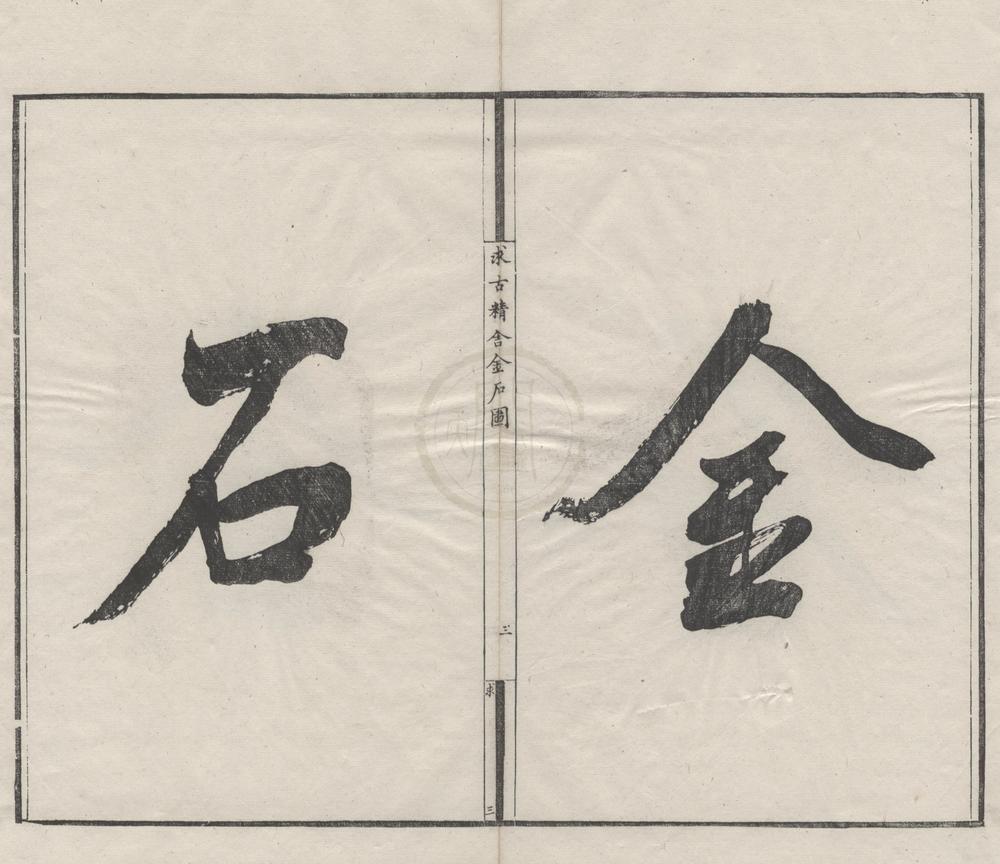 金
求古精舍金石圖
三
求
三
石